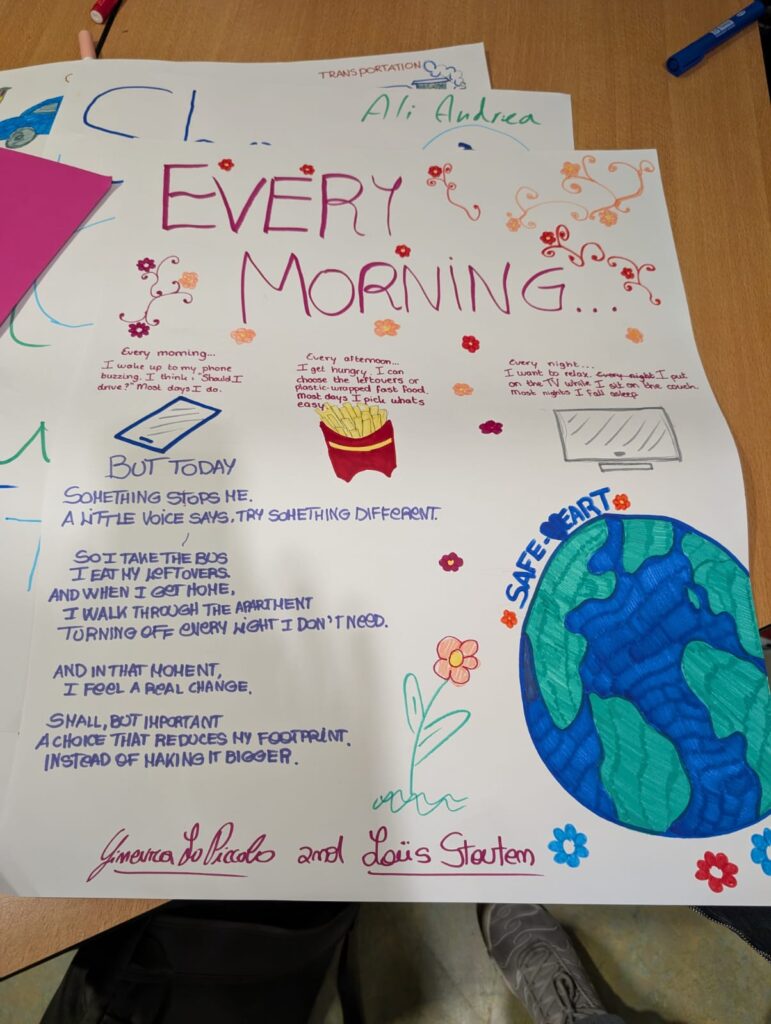 TRANSPORTATION
Ali Andrea
EVERY
MORNING...
Every morning...
I wake up to my phone
buzzing. I think: "Should I
drive?" Most days I do.
Every afternoon...
I get hungry. I can
choose the leftovers or
plastic-wrapped fast food.
Most days I pick whats
easy.
Every night...
I want to relax. Every night I put
on the TV while I sit on the couch.
Most nights I fall asleep
BUT TODAY
SOMETHING STOPS ME.
A LITTLE VOICE SAYS, TRY SOMETHING DIFFERENT.
SO I TAKE THE BUS
I EAT MY LEFTOVERS.
AND WHEN I GET HOME,
I WALK THROUGH THE APARTMENT
TURNING OFF EVERY LIGHT I DON'T NEED.
AND IN THAT MOMENT,
I FEEL A REAL CHANGE.
SMALL, BUT IMPORTANT
A CHOICE THAT REDUCES MY FOOTPRINT.
INSTEAD OF MAKING IT BIGGER.
SAFE-HEART
Ginevra Lo Piccolo and Loüs Stoutem